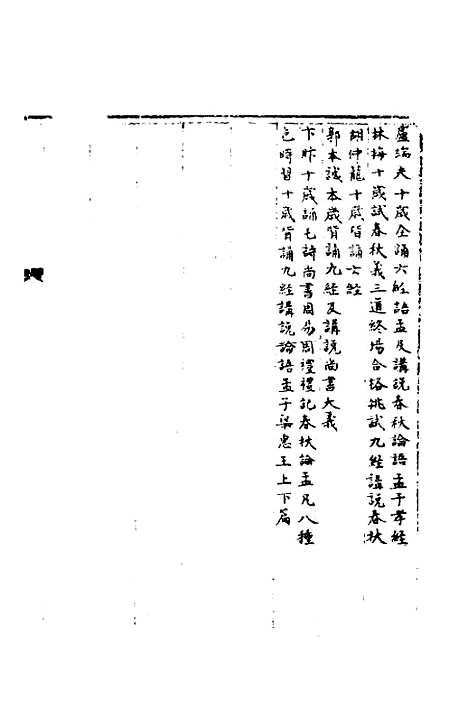 盧端夫十歲全誦六經語孟及講說春秋論語孟子孝經
林梅十歲試春秋義三道終場合格挑試九經講說春秋
胡仲龍十歲皆誦六經
郭本誠本歲背誦九經及講說尚書大義
卞昨十歲誦毛詩尚書周易周禮禮記春秋論孟凡八種
色時習十歲背誦九經講說論語孟子梁惠王上下篇